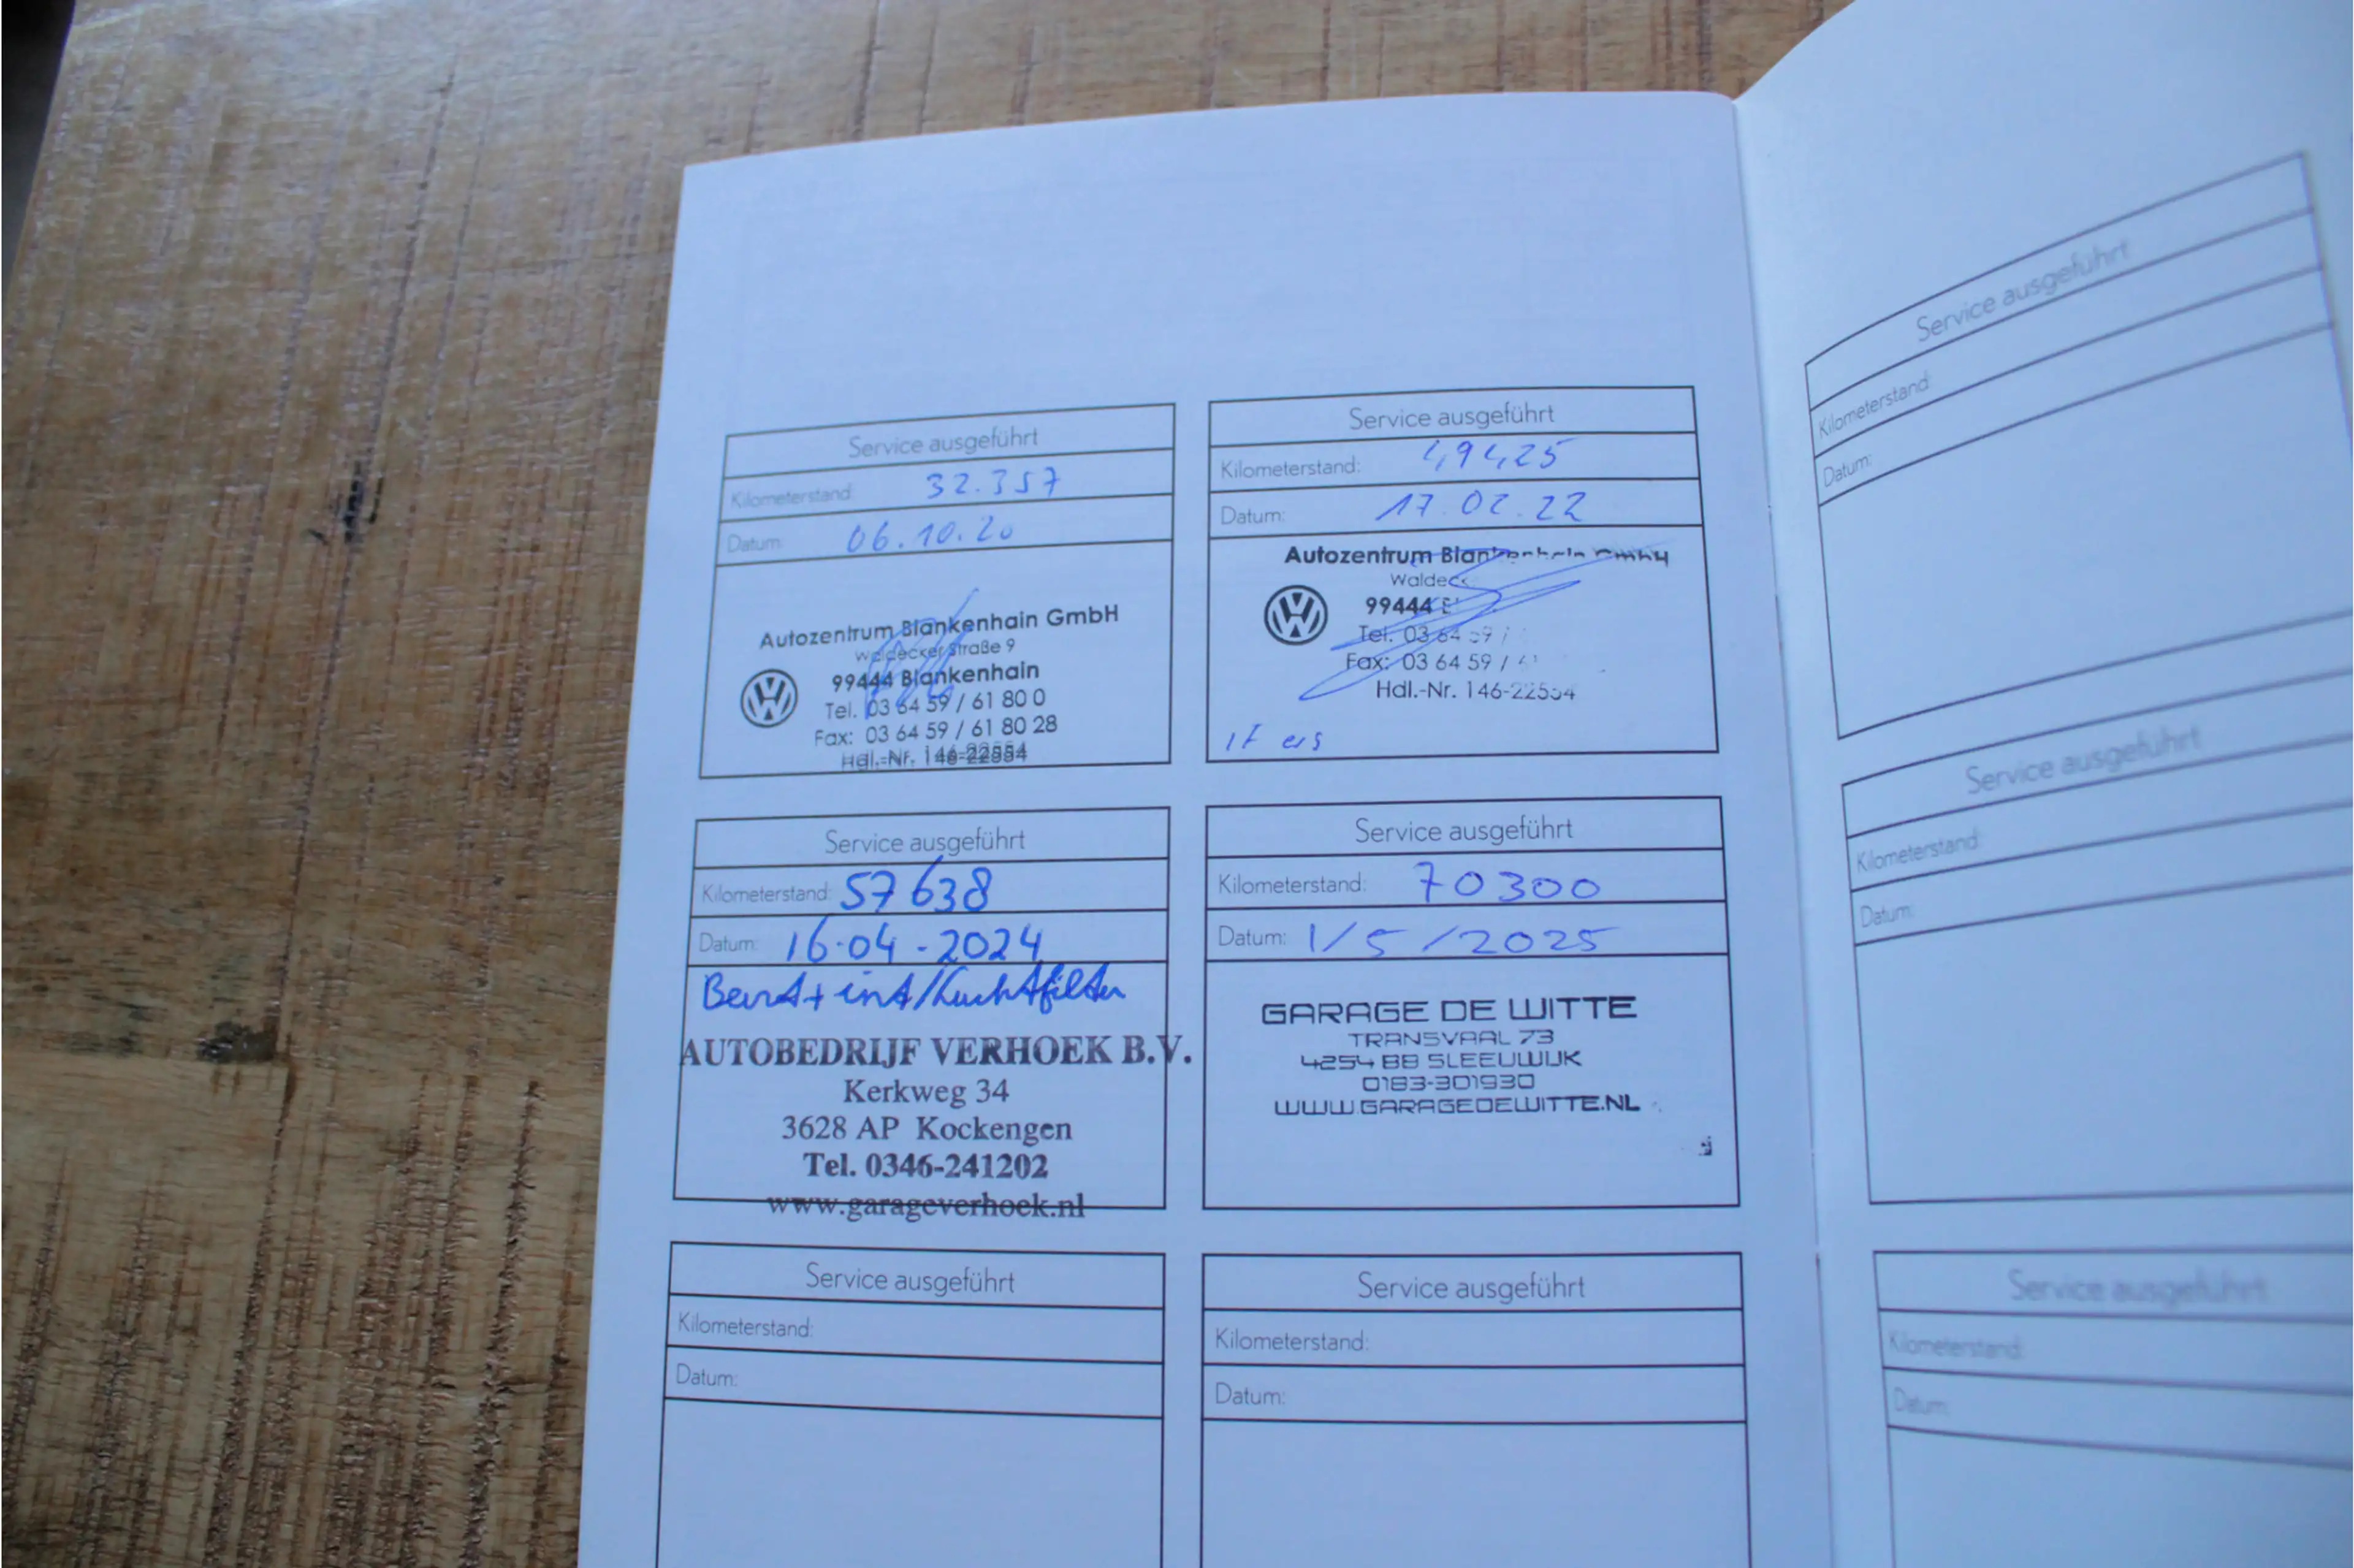 Service ausgeführt
Kilometerstand: 32.357
Datum: 06.10.20
Autozentrum Blankenhain GmbH
Waldecker Straße 9
99444 Blankenhain
Tel. 03 64 59 / 61 80 0
Fax: 03 64 59 / 61 80 28
Hdl.-Nr. 146-22554
Service ausgeführt
Kilometerstand: 49425
Datum: 17.02.22
Autozentrum Blankenhain GmbH
99444
Tel. 03 64 59 /
Fax: 03 64 59 /
Hdl.-Nr. 146-22554
Service ausgeführt
Kilometerstand: 57638
Datum: 16-04-2024
Beurt + int/Luchtfilter
AUTOBEDRIJF VERHOEK B.V.
Kerkweg 34
3628 AP Kockengen
Tel. 0346-241202
www.garageverhoek.nl
Service ausgeführt
Kilometerstand: 70300
Datum: 1/5/2025
GARAGE DE WITTE
TRANSVAAL 73
4254 BB SLEEUWIJK
0183-301930
WWW.GARAGEDEWITTE.NL
Service ausgeführt
Kilometerstand:
Datum:
Service ausgeführt
Kilometerstand:
Datum:
Service ausgeführt
Kilometerstand:
Datum:
Service ausgeführt
Kilometerstand:
Datum:
Service ausgeführt
Kilometerstand:
Datum: